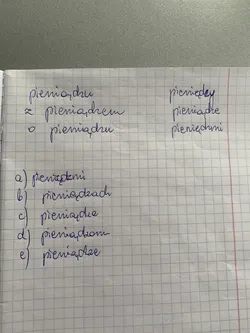 pieniądzu pieniędzy
z pieniądzem pieniądze
o pieniądzu pieniędzmi
a) pieniędzmi
b) pieniądzach
c) pieniądze
d) pieniądzom
e) pieniądze